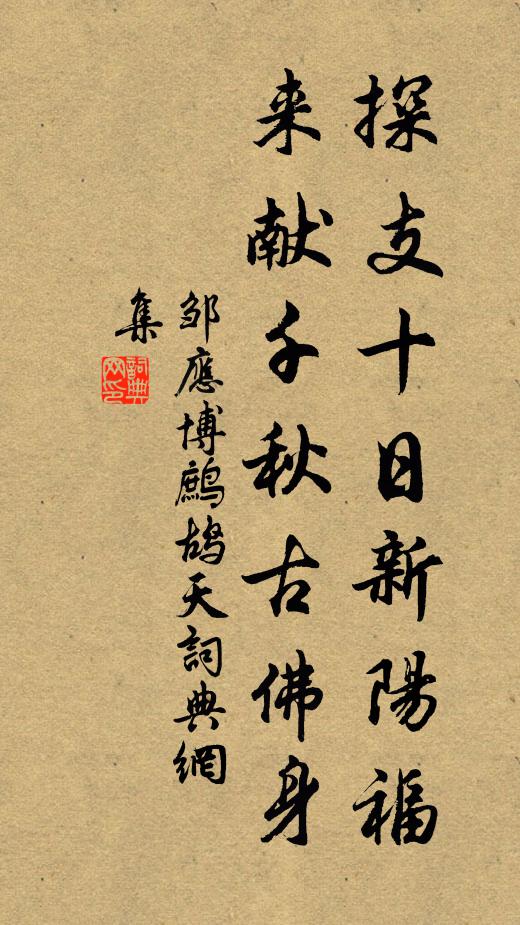 探支十日新陽福
来献千秋古佛身
邹應博鷓鴣天詞典網
集
詞典网印